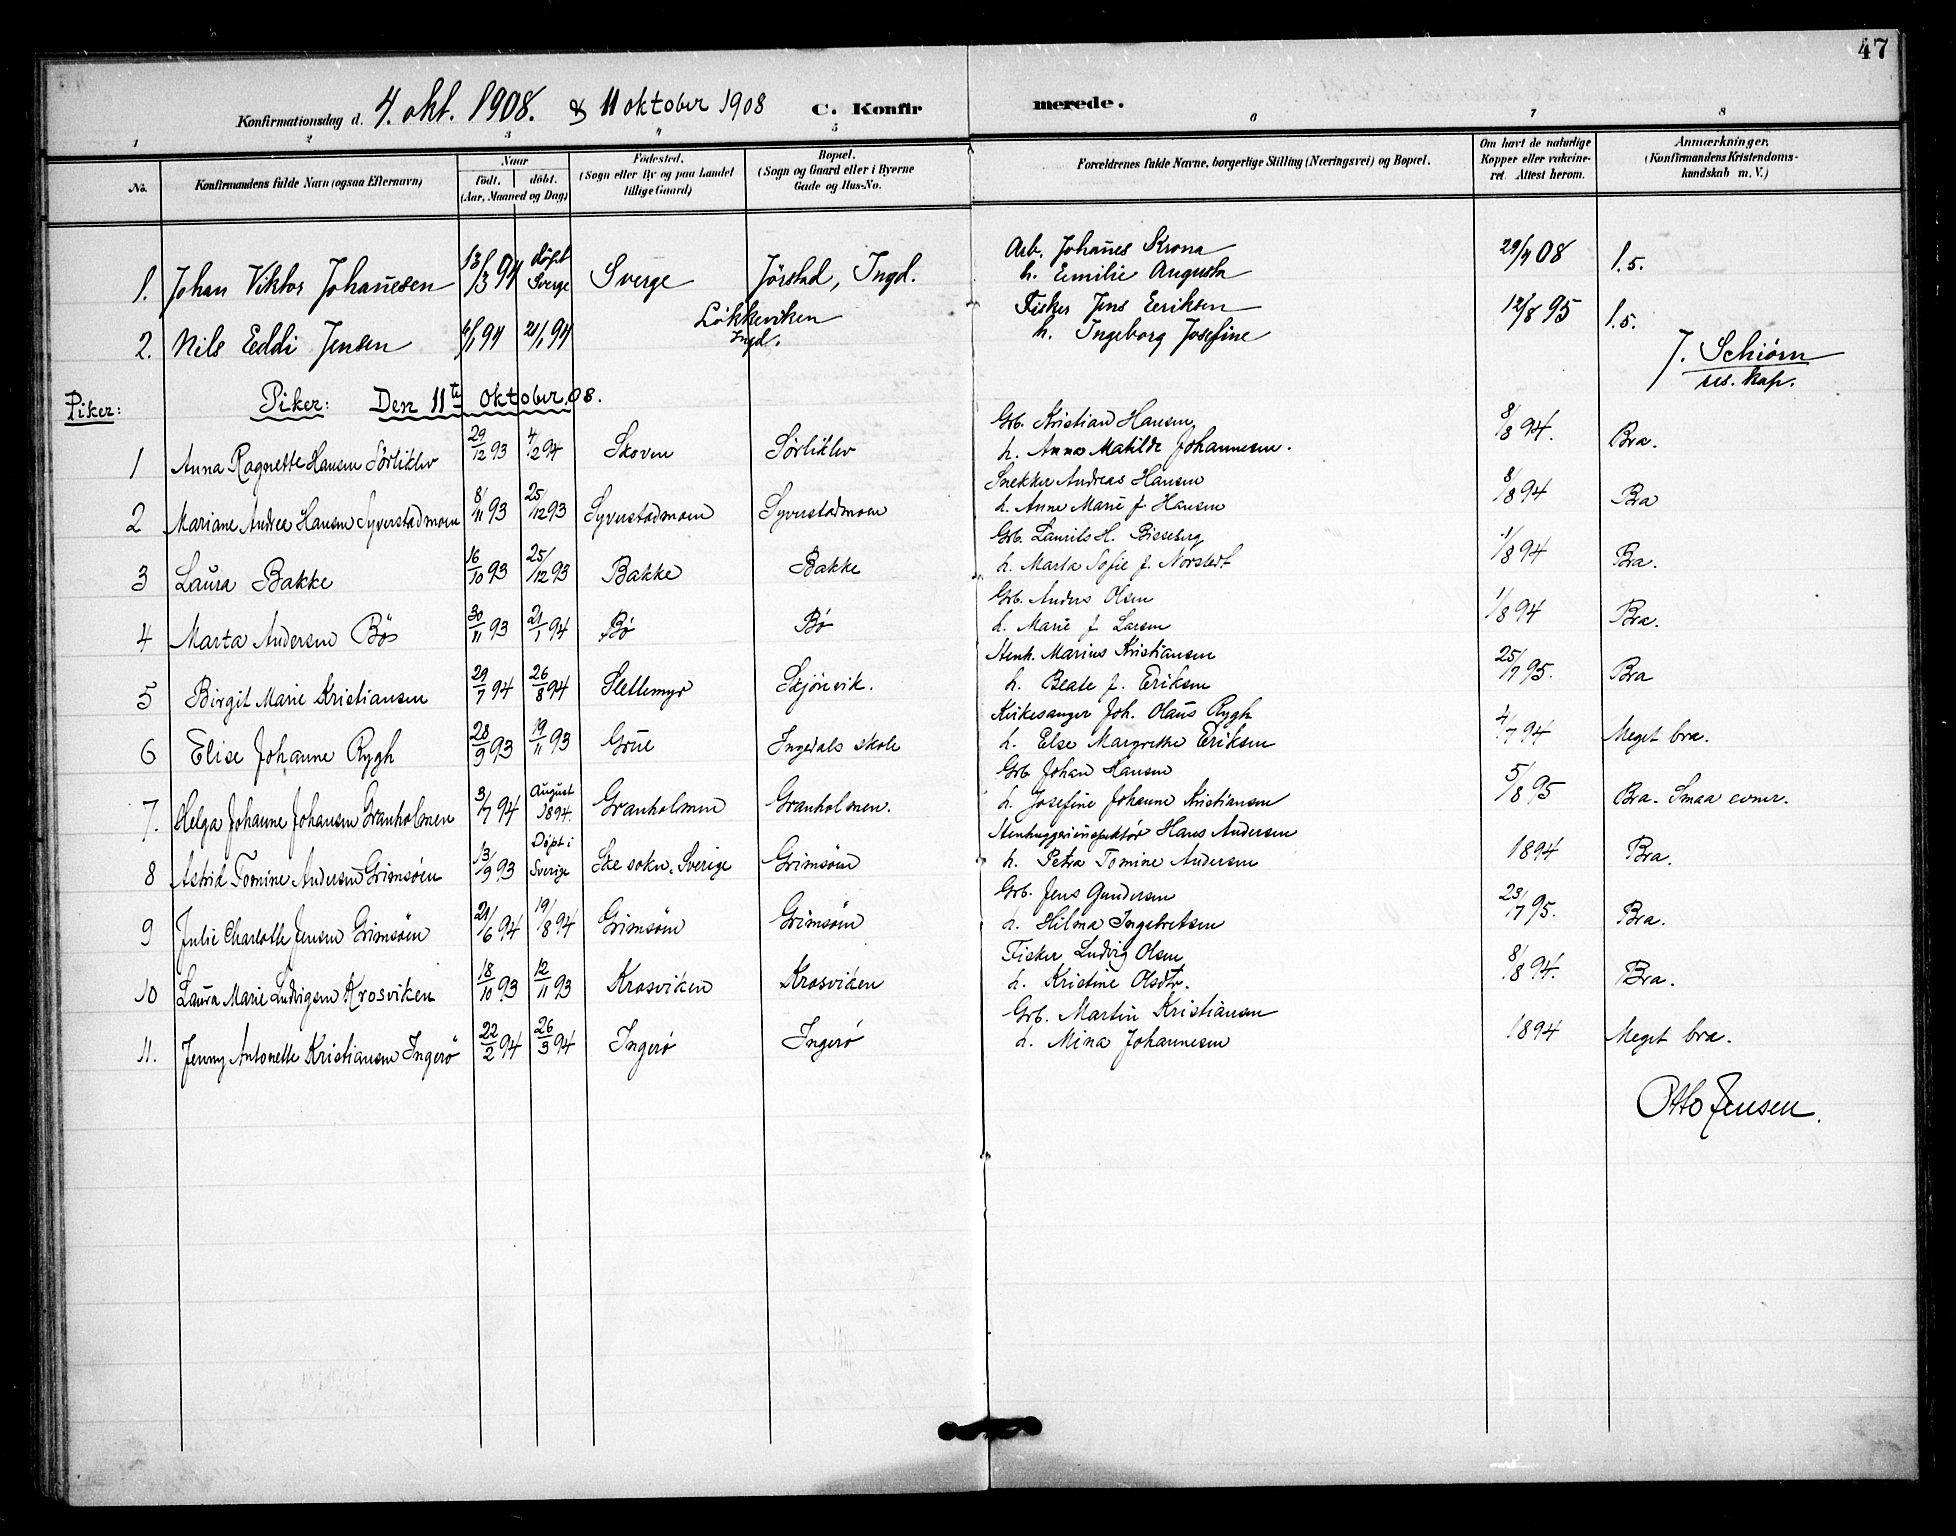 47
Konfirmationsdag d. 4. okt. 1908. & 11 oktober 1908 C. Konfirmerede.
1 2 3 4 5 6 7 8
No.
Konfirmandens fulde Navn (ogsaa Efternavn)
Naar
født. døbt.
(Aar, Maaned og Dag)
Fødested.
(Sogn eller By og paa Landet
tillige Gaard)
Bopæl.
(Sogn og Gaard eller i Byerne
Gade og Hus-No.
Forældrenes fulde Navne, borgerlige Stilling (Næringsvei) og Bopæl.
Om havt de naturlige
Kopper eller vakcine-
ret. Attest herom.
Anmærkninger.
(Konfirmandens Kristendoms-
kundskab m. V.)
1. Johan Viktor Johanesen 13/3 94 døpt Sverge Sverge Jörstad, Ingd. Arb. Johanes Krona 29/4 08 1.5.
h. Emilie Augusta
2. Nils Eddi Jensen 94 21/1 94 Løkkeviken Ingd. Fisker Jens Eeriksen 12/8 95 1.5.
h. Ingeborg Josefine
J. Schiørn
res. kap.
Piker: Piker: Den 11te oktober. 08.
1 Anna Ragnette Hansen Sørliklev 29/12 93 4/2 94 Skoven Sørliklev Grb. Kristian Hansen 8/8 94. Bra.
h. Anna Matilde Johannesen.
2 Mariane Andrea Hansen Syverstadmoen 8/11 93 25/12 93 Syverstadmoen Syverstadmoen Snekker Andreas Hansen 8/8 94 Bra
h. Anne Marie f. Hansen
3 Laura Bakke 16/10 93 25/12 93 Bakke Bakke Grb. Laurits H. Bisseberg 1/8 94 Bra.
h. Marta Sofie f. Norstedt
4 Marta Andersen Bø 30/11 93 21/1 94 Bø Bø Grb. Anders Olsen 1/8 94 Bra.
h. Marie f. Larsen
5 Birgit Marie Kristiansen 29/7 94 26/8 94 Slettemyr Skjönvik. Stenh. Marius Kristiansen 25/7 95. Bra
h. Beate f. Eriksen
6 Elise Johanne Rygh 28/9 93 19/11 93 Grue Ingedals skole Kirkesanger Joh. Olaus Rygh 4/7 94 Meget bra.
h. Else Margrethe Eriksen
7. Helga Johanne Johansen Granholmen 3/7 94 August 1894. Granholmen Granholmen. Grb Johan Hansen 5/8 95 Bra. Smaa evner.
h. Josefine Johanne Kristiansen
8 Astrid Tomine Andersen Grimsøen 13/9 93 Døpt i Sverige Ske sokn. Sverige Grimsöen Stenhuggeriinspektør Hans Andersen 1894 Bra.
h. Petra Tomine Andersen
9 Julie Charlotte Jensen Grimsøen 21/6 94 19/8 94 Grimsøen Grimsøen Grb. Jens Gundersen 23/7 95. Bra.
h. Hilma Ingebretsen
10 Laura Marie Ludvigsen Krosviken 18/10 93 12/11 93 Krosviken Krosviken Fisker Ludvig Olsen 8/8 94. Bra.
h. Kristine Olsdtr.
11. Jenny Antonette Kristiansen Ingerö 22/2 94 26/3 94 Ingerø Ingerø Grb. Martin Kristiansen 1894 Meget bra.
h. Mina Johannesen
Otto Jensen.